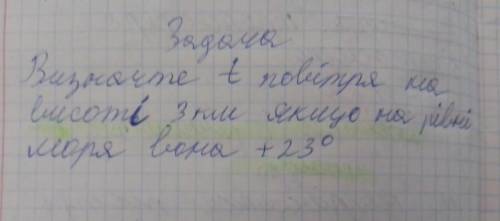 Задача
Визначте t повітря на
висоті 3 км якщо на рівні
моря вона +23°